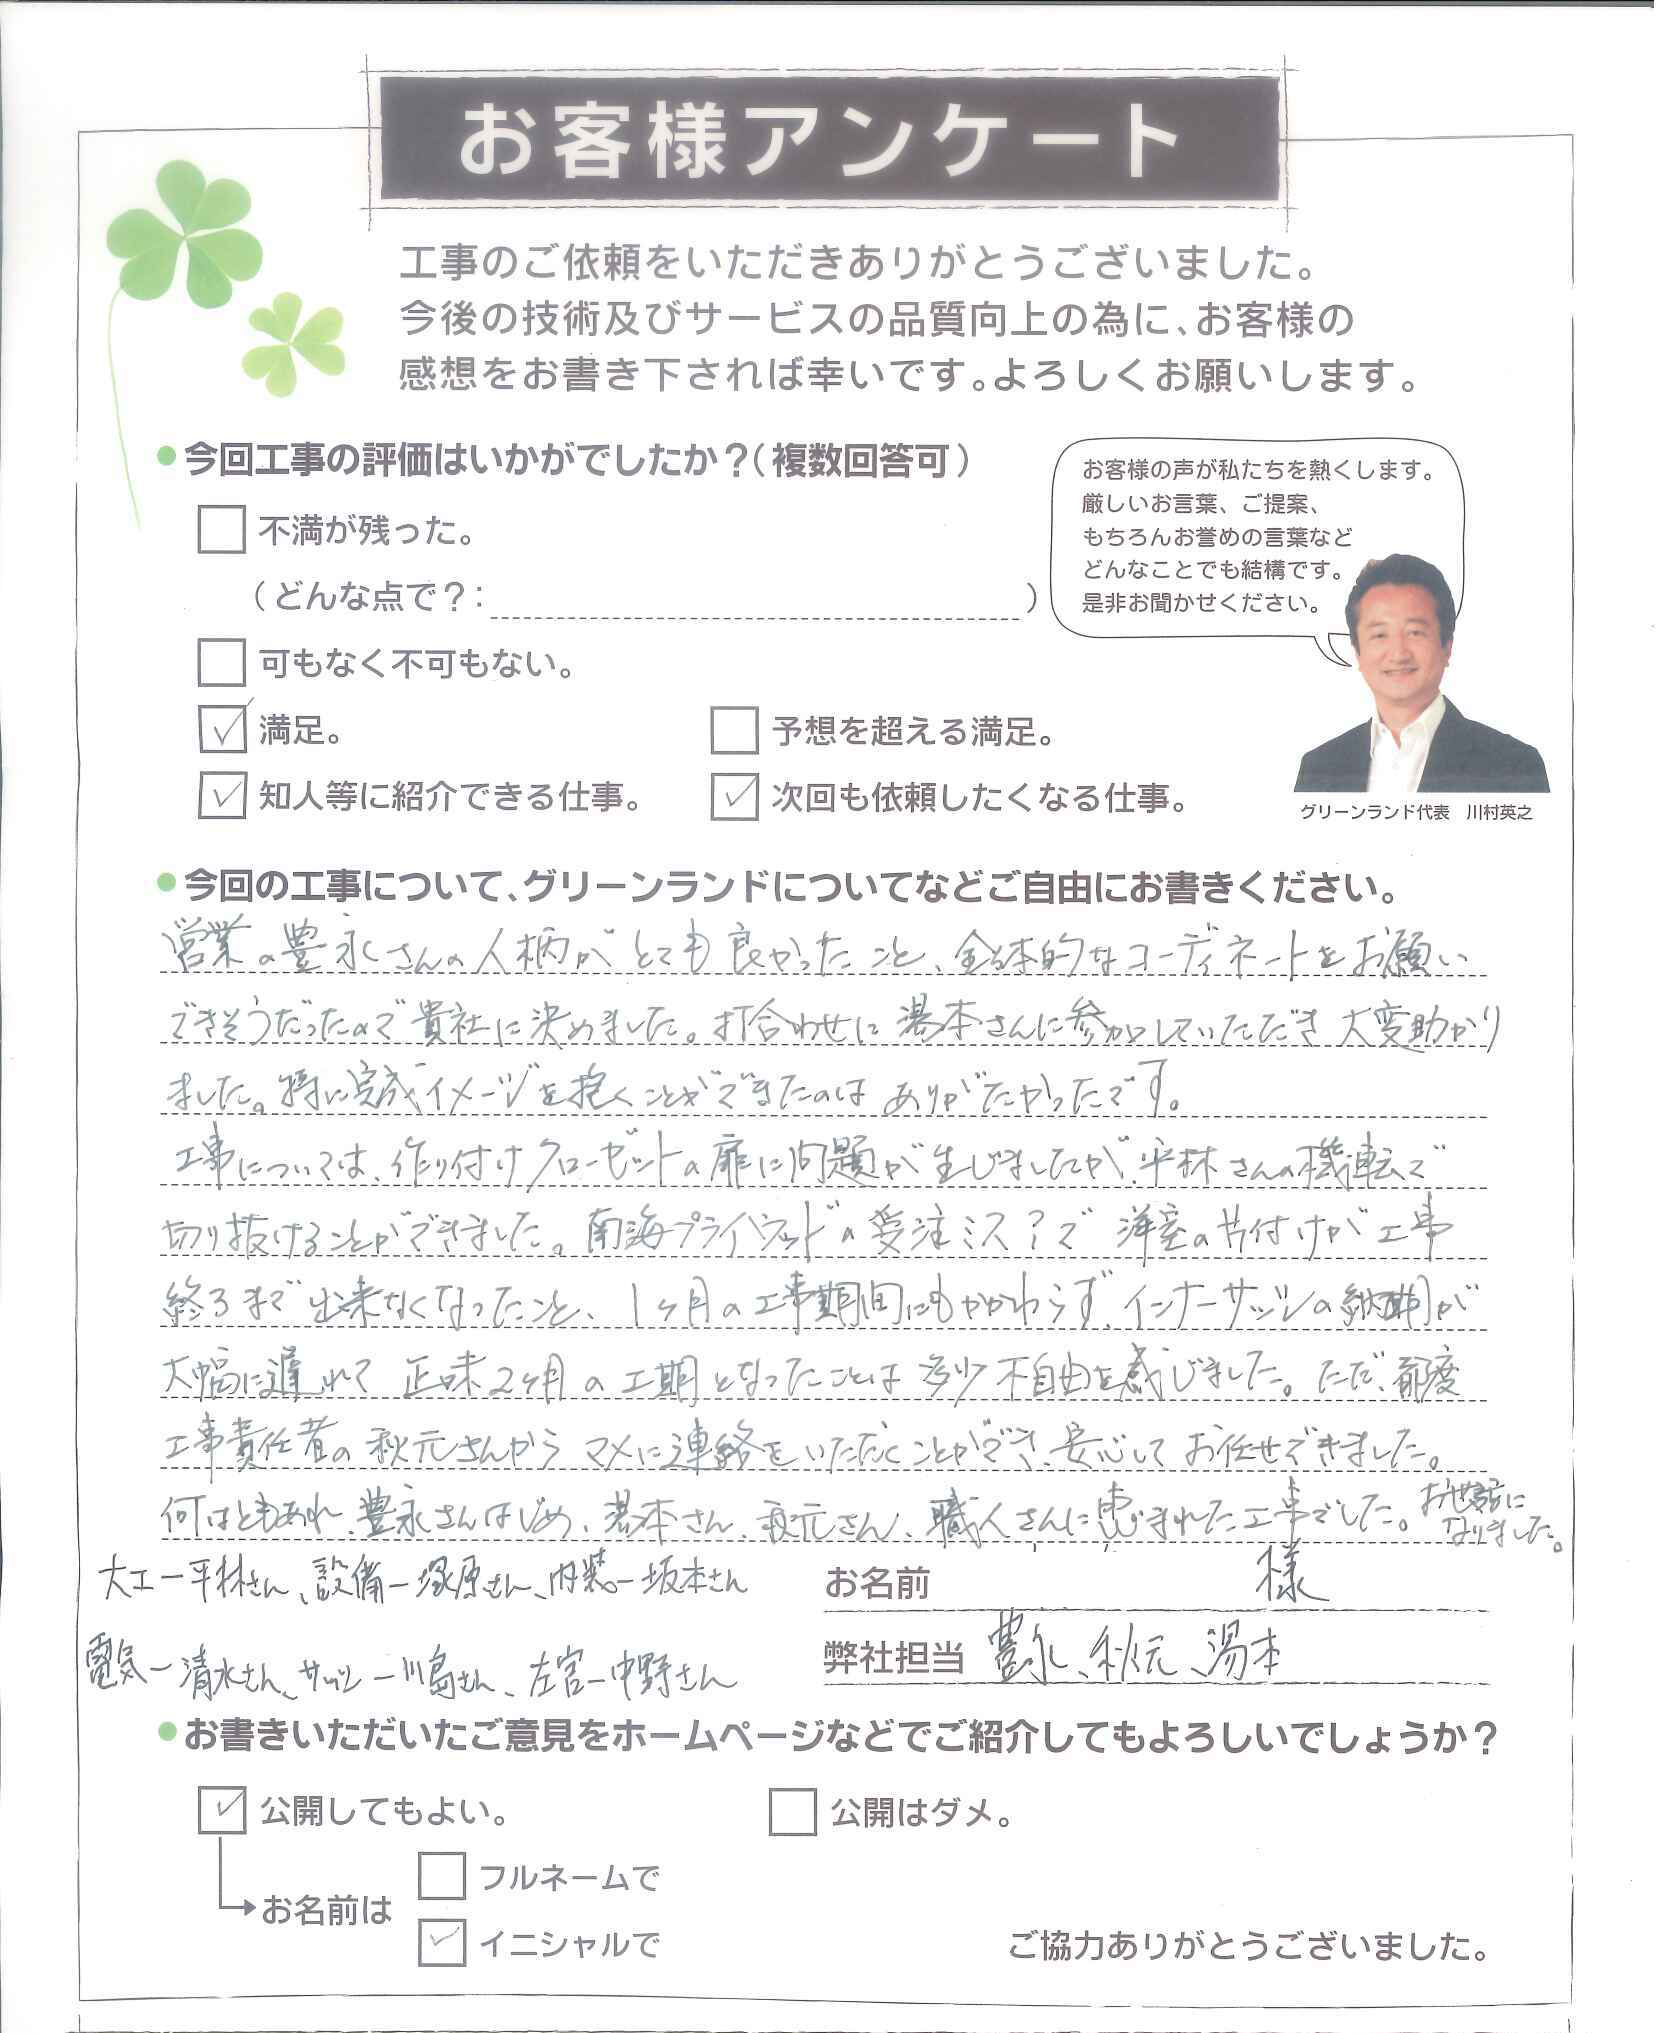 お客様アンケート
工事のご依頼をいただきありがとうございました。
今後の技術及びサービスの品質向上の為に、お客様の
感想をお書き下されば幸いです。よろしくお願いします。
今回工事の評価はいかがでしたか？（複数回答可）
不満が残った。
（どんな点で？：　）
可もなく不可もない。
満足。
予想を超える満足。
知人等に紹介できる仕事。
次回も依頼したくなる仕事。
お客様の声が私たちを熱くします。
厳しいお言葉、ご提案、
もちろんお誉めの言葉など
どんなことでも結構です。
是非お聞かせください。
グリーンランド代表　川村英之
今回の工事について、グリーンランドについてなどご自由にお書きください。
営業の豊永さんの人柄がとても良かったこと、全体的なコーディネートをお願い
できそうだったので貴社に決めました。打合わせに湯本さんに参加していただき大変助かり
ました。特に完成イメージを抱くことができたのはありがたかったです。
工事については、作り付けクローゼットの扉に問題が生じましたが、平林さんの機転で
切り抜けることができました。南海プライウッドの受注ミス？で洋室の片付けが工事
終るまで出来なくなったこと、1ヶ月の工事期間にもかかわらず、インナーサッシの納期が
大幅に遅れて正味2ヶ月の工期となったことは多少不自由を感じました。ただ、都度
工事責任者の秋元さんからマメに連絡をいただくことができ、安心してお任せできました。
何はともあれ、豊永さんはじめ、湯本さん、秋元さん、職人さんに恵まれた工事でした。お世話に
なりました。
大工ー平林さん、設備ー塚原さん、内装ー坂本さん
電気ー清水さん、サッシー川島さん、左官ー中野さん
お名前　様
弊社担当 豊永、秋元、湯本
お書きいただいたご意見をホームページなどでご紹介してもよろしいでしょうか？
公開してもよい。
公開はダメ。
お名前は
フルネームで
イニシャルで
ご協力ありがとうございました。